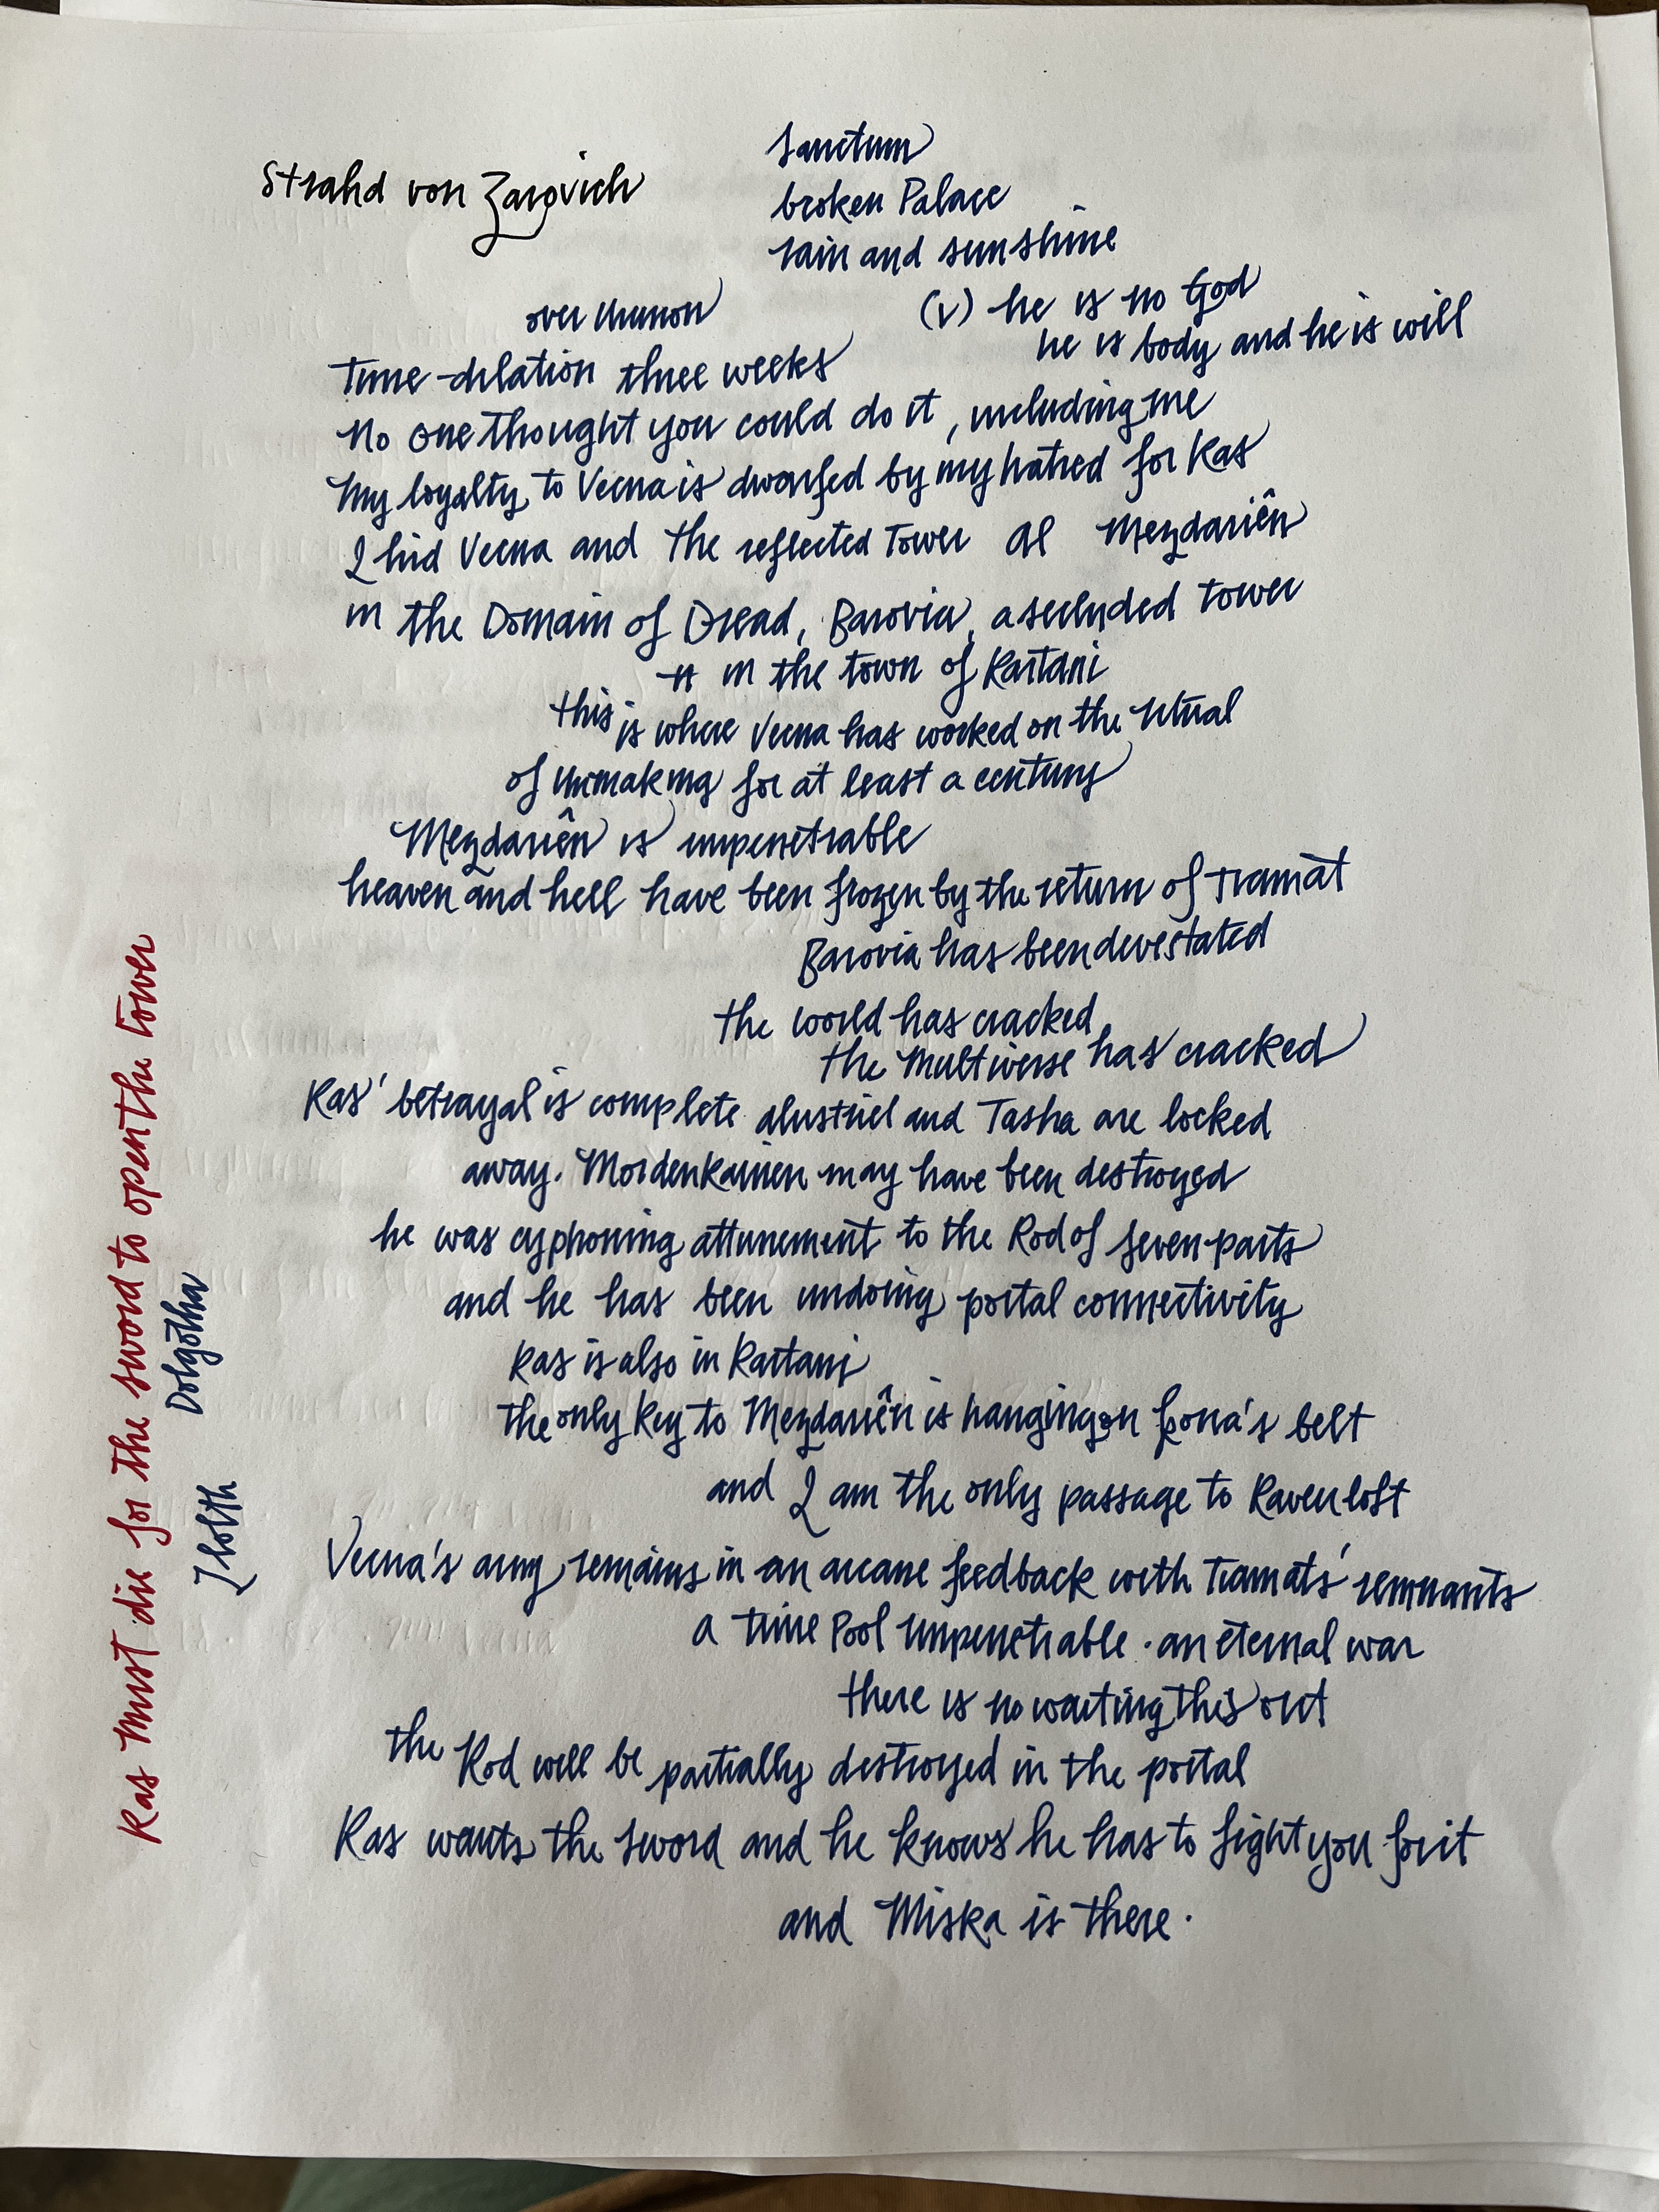 Sanctum
Strahd von Zarovich
broken Palace
rain and sunshine
(V) he is no God
he is body and he is will
over
Time-dilation three weeks
No one thought you could do it, including me
My loyalty to Vecna is dwarfed by my hatred for Kas
I hid Vecna and the reflected Tower of Mezdariên
in the Domain of Dread, Barovia, a secluded tower
in the town of Kartani
this is where Vecna has worked on the ritual
of unmaking for at least a century
Mezdariên is impenetrable
heaven and hell have been frozen by the return of Tiamat
Barovia has been devestated
the world has cracked
the Multiverse has cracked
Kas' betrayal is complete. Alustriel and Tasha are locked
away. Mordenkainen may have been destroyed
he was cyphoning attunement to the Rod of Seven parts
and he has been undoing portal connectivity
Kas is also in Kartani
the only key to Mezdariên is hanging on belt
and I am the only passage to Ravenloft
Vecna's army remains in an arcane feedback with Tiamats' remnants
a time Pool impenetrable. an eternal war
there is no waiting this out
the Rod will be partially destroyed in the portal
Kas wants the sword and he knows he has to fight you for it
and Miska is there.
Kas must die for the sword to open the tower
Zholth Dolgotha